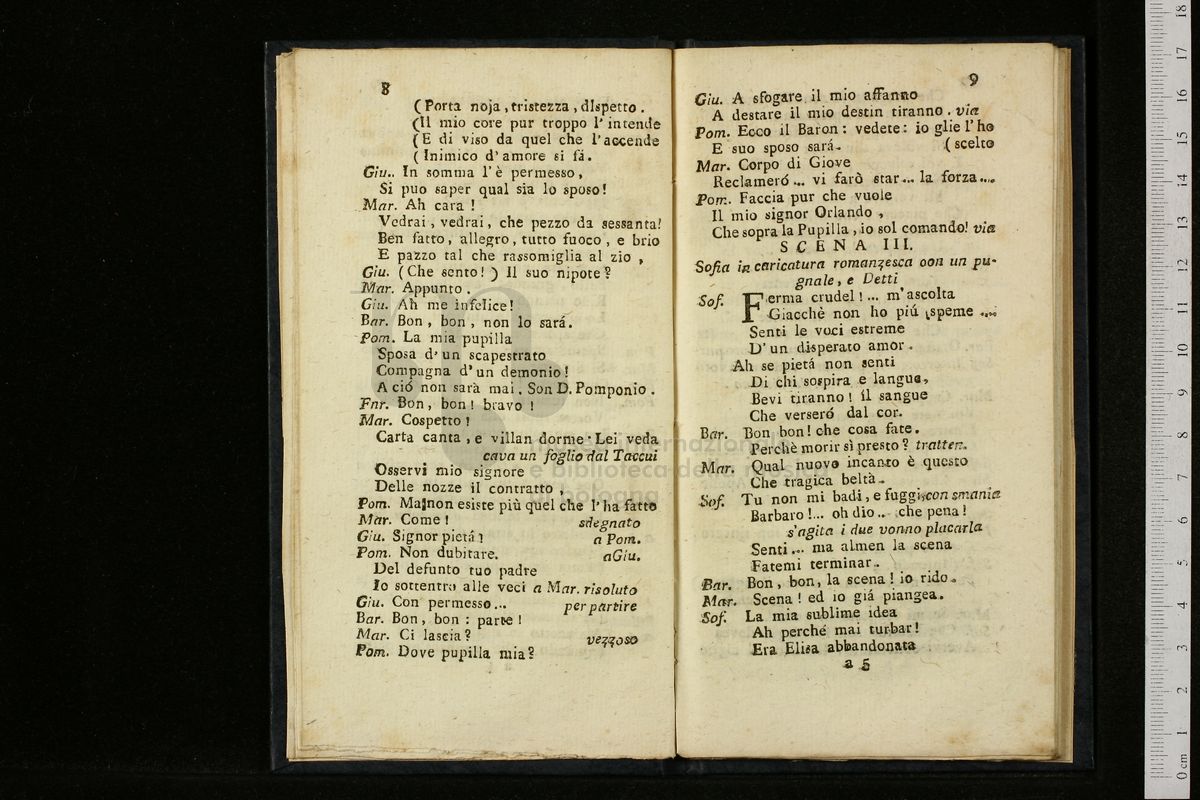 8
(Porta noja, tristezza, dIspetto.
(Il mio core pur troppo l'intende
(E di viso da quel che l'accende
(Inimico d'amore si fá.
Giu.. In somma l'è permesso,
Si puo saper qual sia lo sposo!
Mar. Ah cara!
Vedrai, vedrai, che pezzo da sessanta!
Ben fatto, allegro, tutto fuoco, e brio
E pazzo tal che rassomiglia al zio,
Giu. (Che sento!) Il suo nipote?
Mar. Appunto.
Giu. Ah me infelice!
Bar. Bon, bon, non lo sará.
Pom. La mia pupilla
Sposa d'un scapestrato
Compagna d'un demonio!
A ció non sarà mai. Son D. Pomponio.
Fnr. Bon, bon! bravo!
Mar. Cospetto!
Carta canta, e villan dorme. Lei veda
cava un foglio dal Taccui
Osservi mio signore
Delle nozze il contratto,
Pom. Ma non esiste più quel che l'ha fatto
Mar. Come! sdegnato
Giu. Signor pietá! a Pom.
Pom. Non dubitare. aGiu.
Del defunto tuo padre
Io sottentro alle veci a Mar. risoluto
Giu. Con permesso... per partire
Bar. Bon, bon: parte!
Mar. Ci lascia? vezzoso
Pom. Dove pupilla mia?
9
Giu. A sfogare il mio affanno
A destare il mio destin tiranno. via
Pom. Ecco il Baron: vedete: io glie l'ho
E suo sposo sará. (scelto
Mar. Corpo di Giove
Reclameró... vi farò star... la forza....
Pom. Faccia pur che vuole
Il mio signor Orlando,
Che sopra la Pupilla, io sol comando! via
SCENA III.
Sofia in caricatura romanzesca oon un pu-
gnale, e Detti
Sof. Ferma crudel!... m'ascolta
Giacchè non ho piú speme ....
Senti le voci estreme
D'un disperato amor.
Ah se pietá non senti
Di chi sospira e langue,
Bevi tiranno! il sangue
Che verseró dal cor.
Bar. Bon bon! che cosa fate.
Perchè morir sì presto? tratten.
Mar. Qual nuovo incanto è questo
Che tragica beltà.
Sof. Tu non mi badi, e fuggi con smania
Barbaro!... oh dio.. che pena!
s'agita i due vonno placarla
Senti... ma almen la scena
Fatemi terminar.
Bar. Bon, bon, la scena! io rido.
Mar. Scena! ed io giá piangea.
Sof. La mia sublime idea
Ah perché mai turbar!
Era Elisa abbandonata
a 5
museo internazionale
e biblioteca della musica
di bologna
0 cm 1 2 3 4 5 6 7 8 9 10 11 12 13 14 15 16 17 18